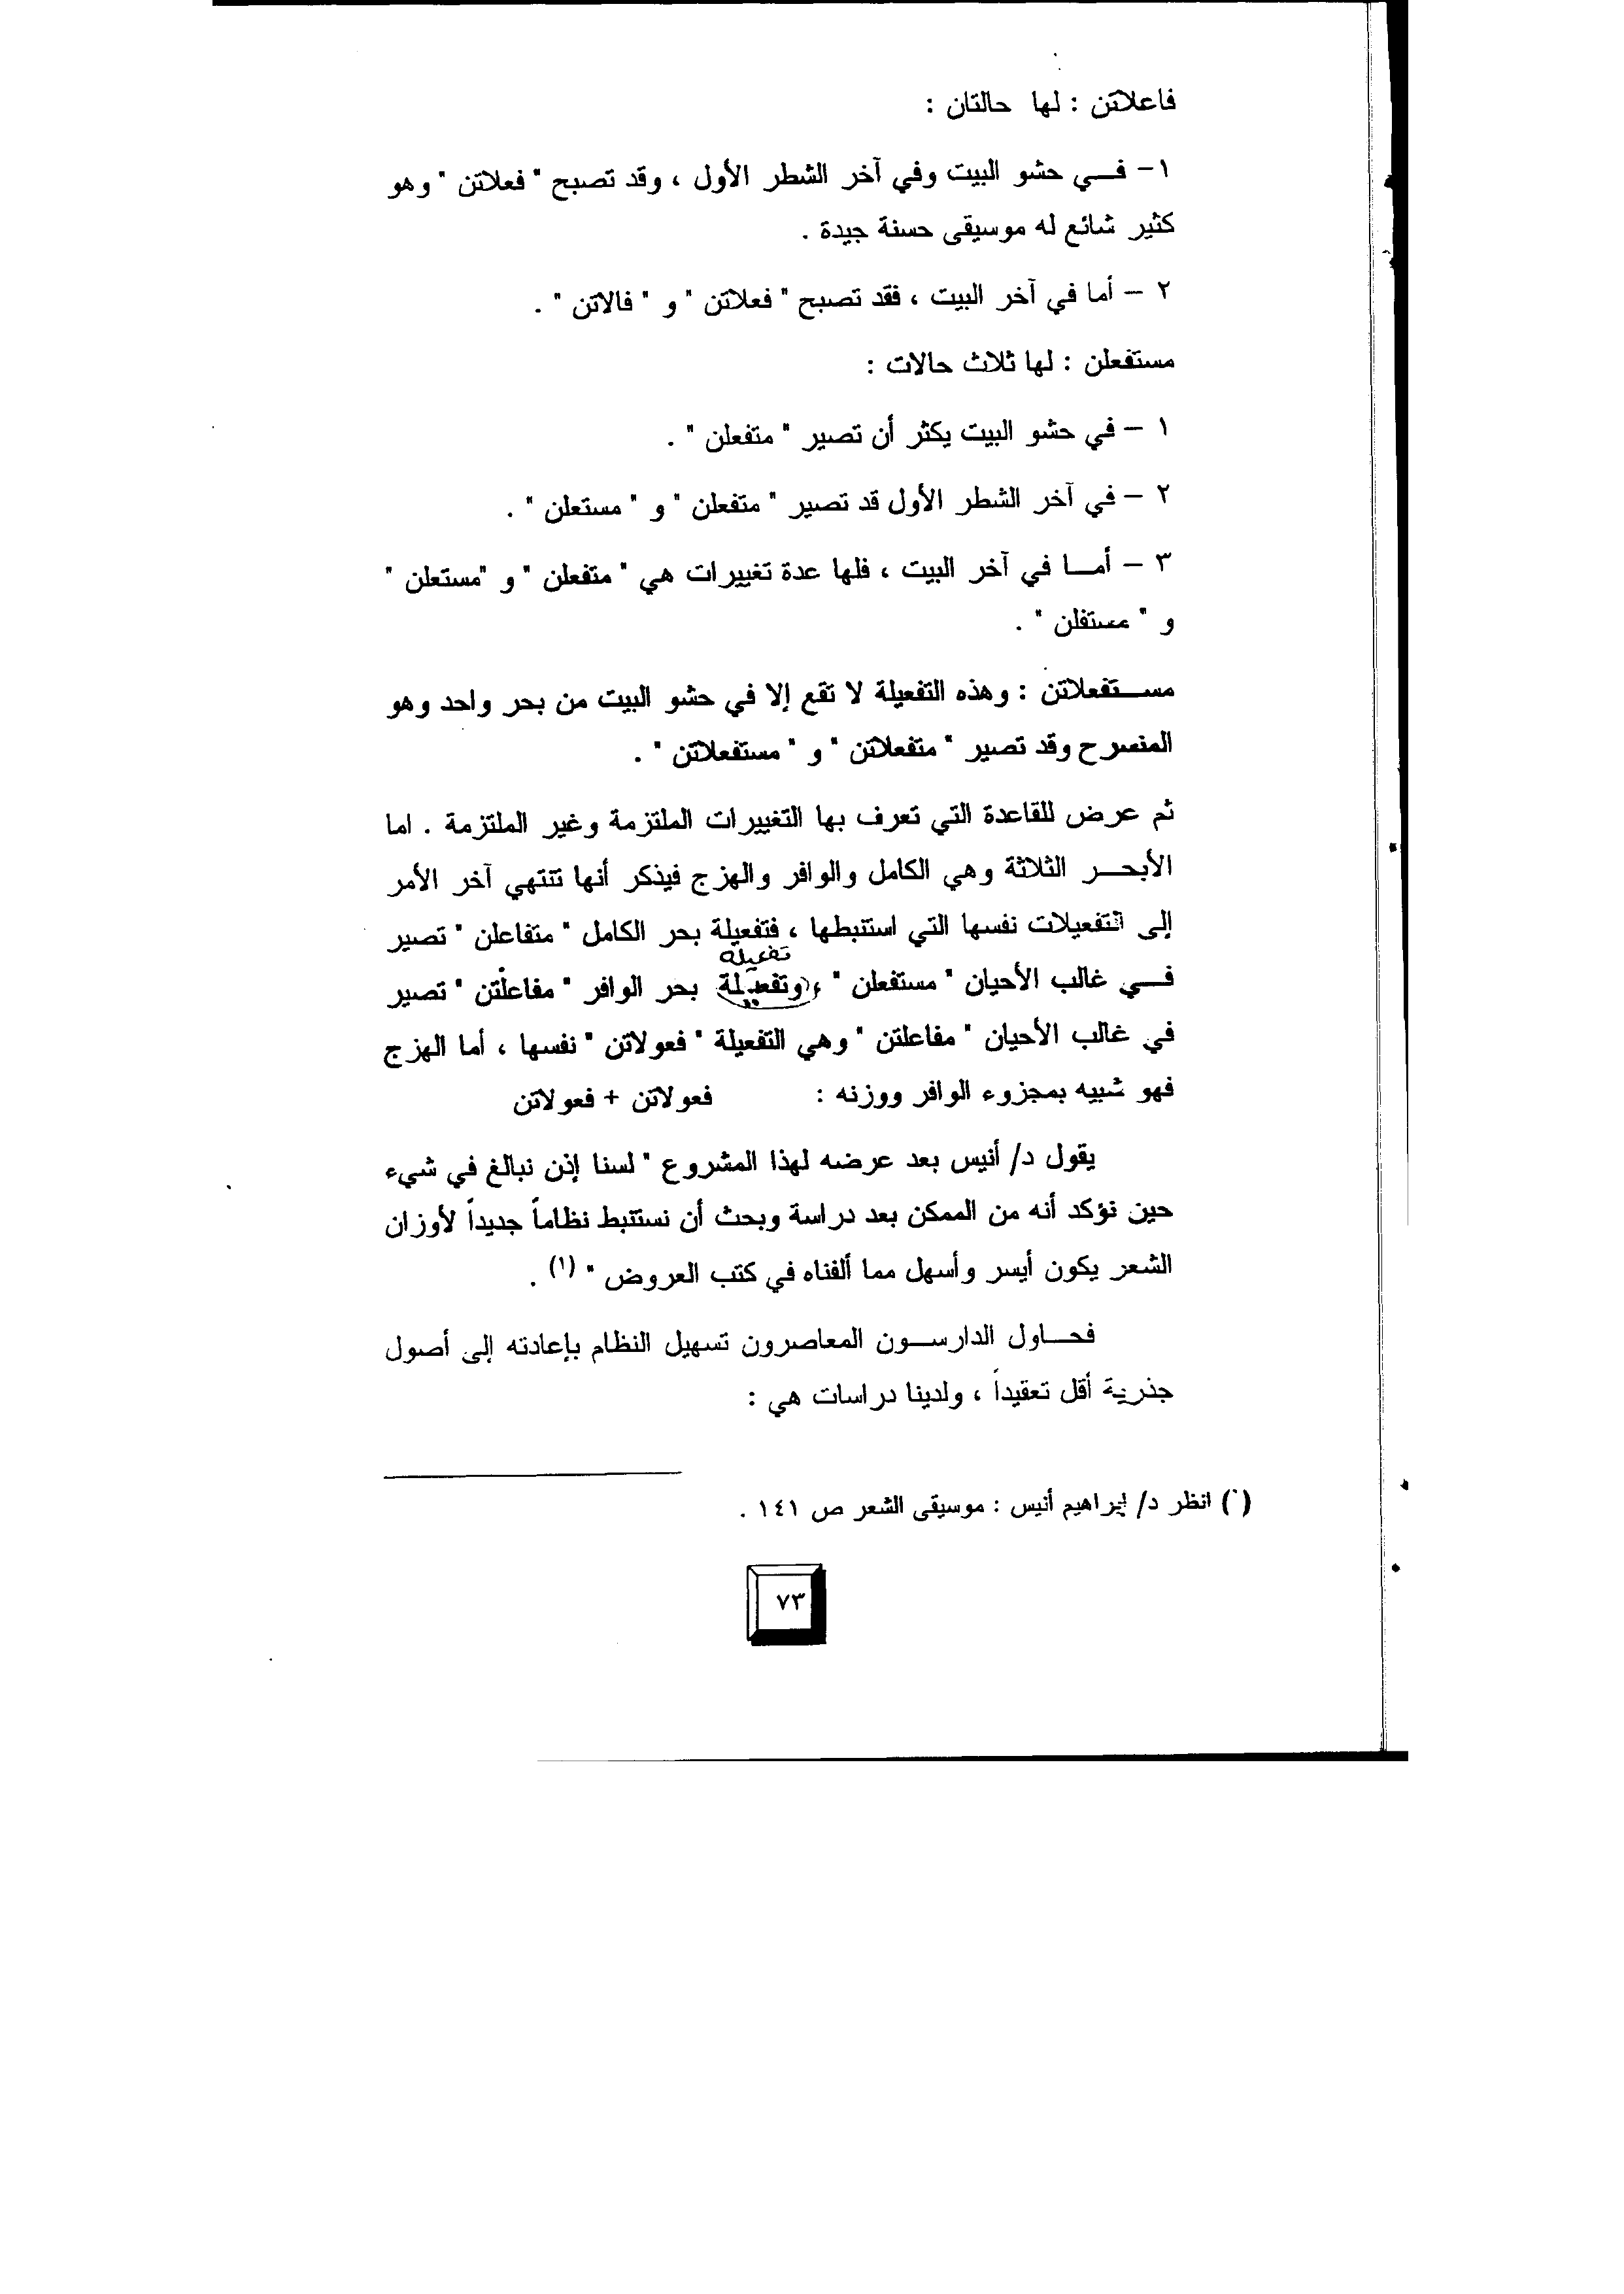 فاعلاتن : لها حالتان :
١- فـــي حشو البيت وفي آخر الشطر الأول ، وقد تصبح " فعلاتن " وهو
كثير شائع له موسيقى حسنة جيدة .
٢ – أما في آخر البيت ، فقد تصبح " فعلاتن " و " فالاتن " .
مستفعلن : لها ثلاث حالات :
١ – في حشو البيت يكثر أن تصير " متفعلن " .
٢ – في آخر الشطر الأول قد تصير " متفعلن " و " مستعلن " .
٣ – أمـــا في آخر البيت ، فلها عدة تغييرات هي " متفعلن " و "مستعلن "
و " مستفلن " .
مســـتفعلاتن : وهذه التفعيلة لا تقع إلا في حشو البيت من بحر واحد وهو
المنسرح وقد تصير " متفعلاتن " و " مستفعلاتن " .
ثم عرض للقاعدة التي تعرف بها التغييرات الملتزمة وغير الملتزمة . اما
الأبحـــر الثلاثة وهي الكامل والوافر والهزج فيذكر أنها تنتهي آخر الأمر
إلى التفعيلات نفسها التي استنبطها ، فتفعيلة بحر الكامل " متفاعلن " تصير
تفعيلة
فـــي غالب الأحيان " مستفعلن " ، وتفعيلة بحر الوافر " مفاعلْتن " تصير
في غالب الأحيان " مفاعلتن " وهي التفعيلة " فعولاتن " نفسها ، أما الهزج
فهو شبيه بمجزوء الوافر ووزنه : فعولاتن + فعولاتن
يقول د/ أنيس بعد عرضه لهذا المشروع " لسنا إذن نبالغ في شيء
حين نؤكد أنه من الممكن بعد دراسة وبحث أن نستنبط نظاماً جديداً لأوزان
الشعر يكون أيسر وأسهل مما ألفناه في كتب العروض " (١) .
فحـــاول الدارســـون المعاصرون تسهيل النظام بإعادته إلى أصول
جذرية أقل تعقيداً ، ولدينا دراسات هي :
(١) انظر د/ إبراهيم أنيس : موسيقى الشعر ص ١٤١ .
٧٣